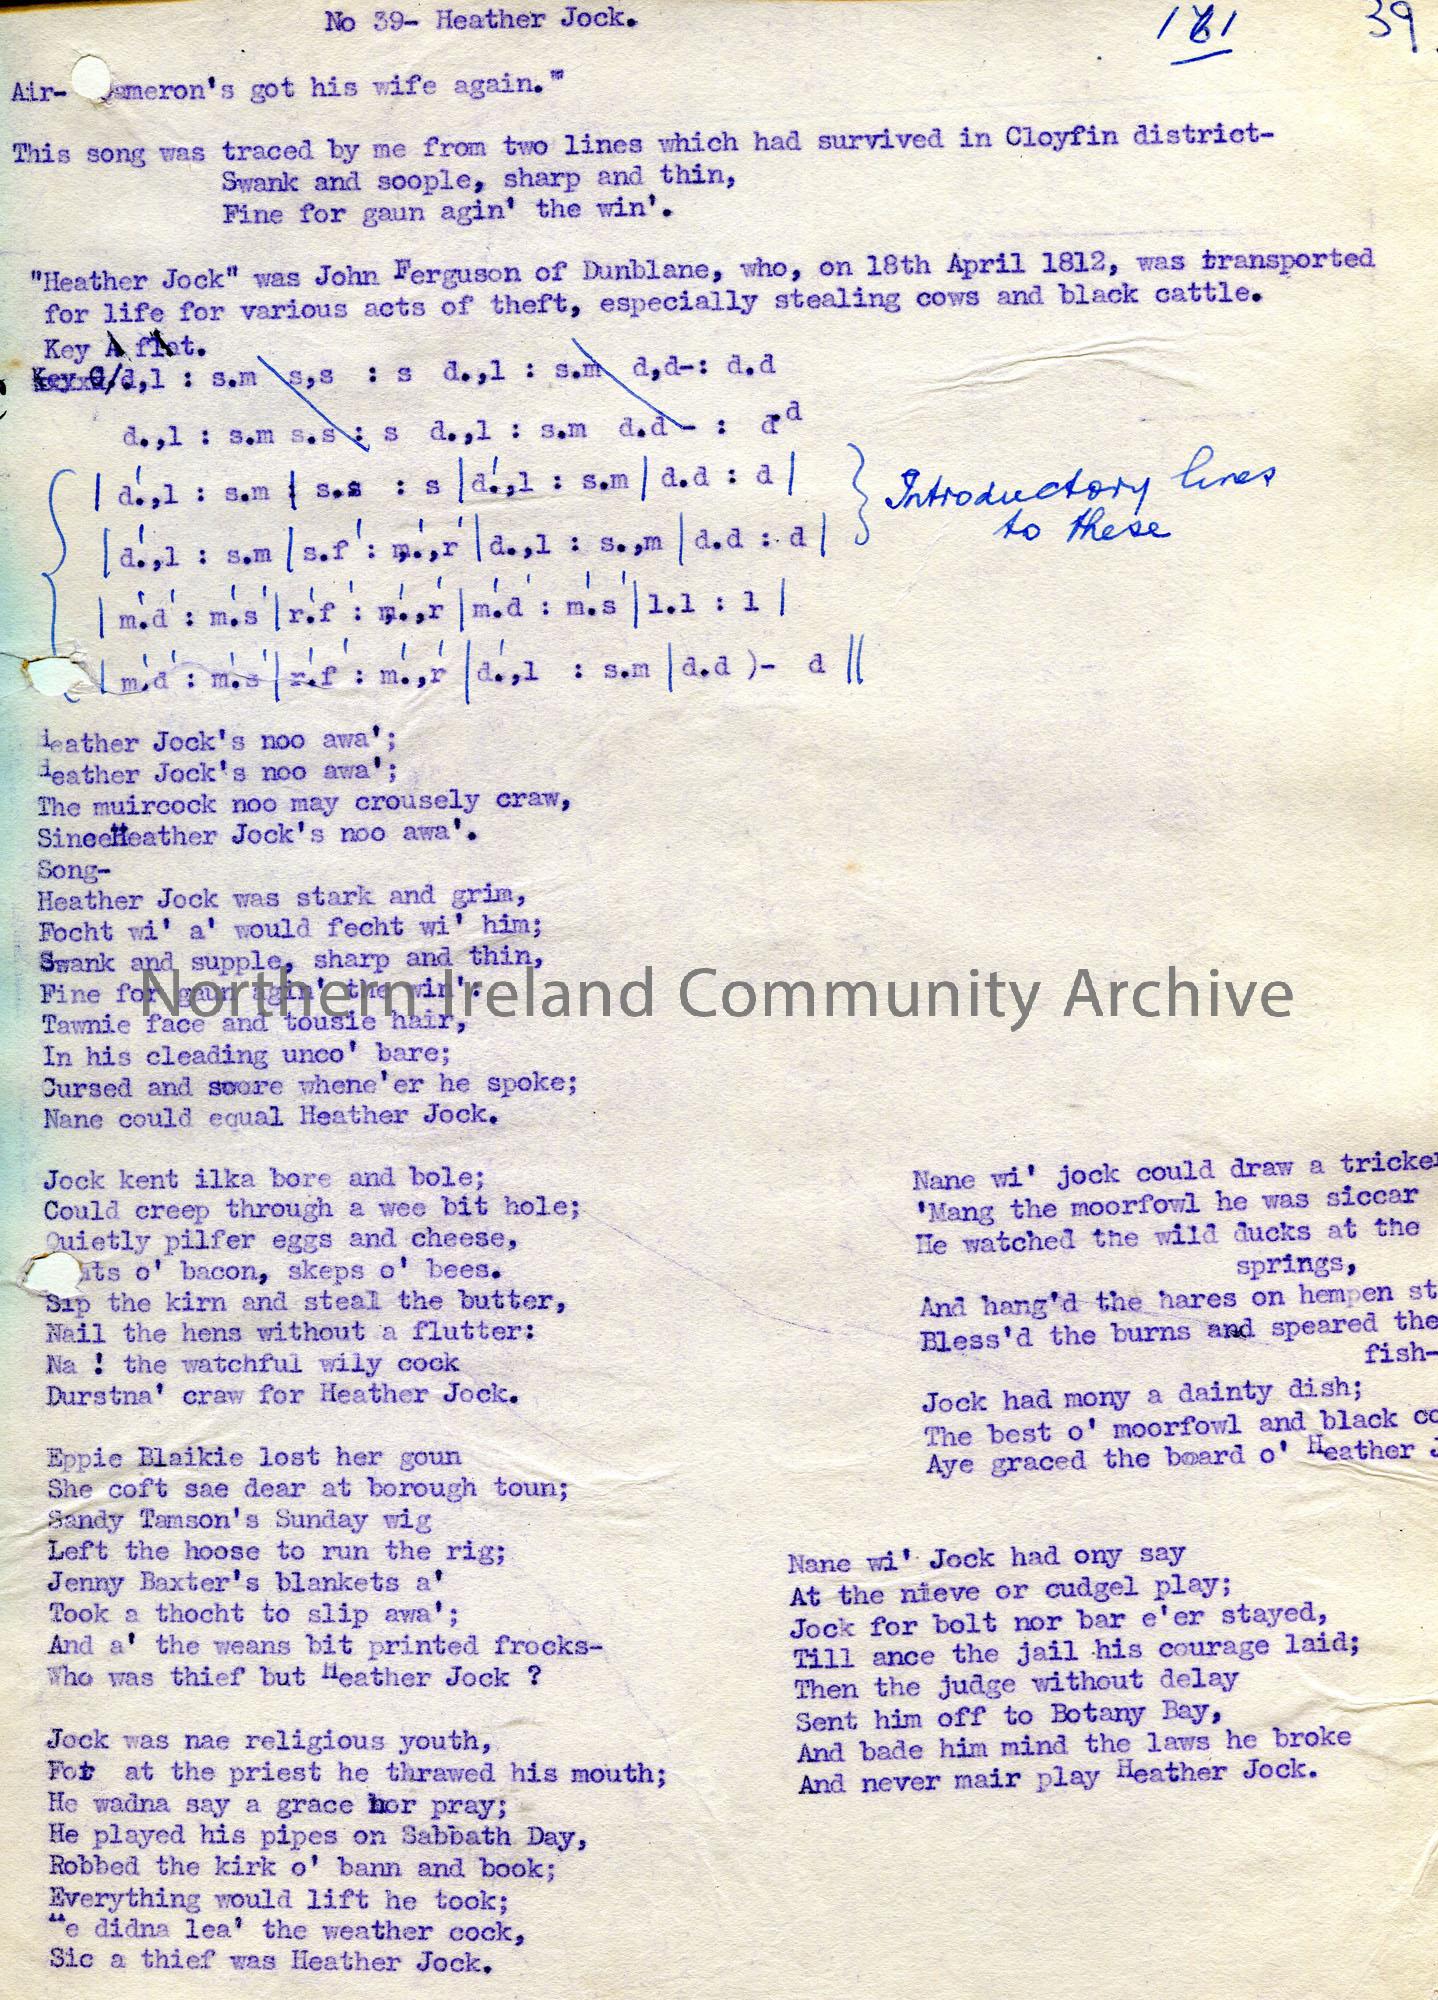 No 39- Heather Jock.
161
39
Air- Cameron's got his wife again."
This song was traced by me from two lines which had survived in Cloyfin district-
Swank and soople, sharp and thin,
Fine for gaun agin' the win'.
"Heather Jock" was John Ferguson of Dunblane, who, on 18th April 1812, was transported
for life for various acts of theft, especially stealing cows and black cattle.
Key A flat.
Key G/d,l : s.m s,s : s d.,l : s.m d,d-: d.d
d.,l : s.m s.s : s d.,l : s.m d.d - : d.d
| d'.,l : s.m | s.s : s | d'.,l : s.m | d.d : d |
Introductory lines
to these
| d'.,l : s.m | s.f' : m'.,r' | d'.,l : s.,m | d.d : d |
| m'.d' : m'.s' | r'.f' : m'.,r' | m'.d' : m'.s' | l.l : l |
| m'.d' : m'.s' | r'.f' : m'.,r' | d'.,l : s.m | d.d )- d ||
Heather Jock's noo awa';
Heather Jock's noo awa';
The muircock noo may crousely craw,
Since Heather Jock's noo awa'.
Song-
Heather Jock was stark and grim,
Focht wi' a' would fecht wi' him;
Swank and supple, sharp and thin,
Fine for gaun agin' the win'.
Northern Ireland Community Archive
Tawnie face and tousie hair,
In his cleading unco' bare;
Cursed and swore whene'er he spoke;
Nane could equal Heather Jock.
Jock kent ilka bore and bole;
Could creep through a wee bit hole;
Quietly pilfer eggs and cheese,
o' bacon, skeps o' bees.
Sip the kirn and steal the butter,
Nail the hens without a flutter:
Na ! the watchful wily cock
Durstna' craw for Heather Jock.
Eppie Blaikie lost her goun
She coft sae dear at borough toun;
Sandy Tamson's Sunday wig
Left the hoose to run the rig;
Jenny Baxter's blankets a'
Took a thocht to slip awa';
And a' the weans bit printed frocks-
Who was thief but Heather Jock ?
Jock was nae religious youth,
For at the priest he thrawed his mouth;
He wadna say a grace nor pray;
He played his pipes on Sabbath Day,
Robbed the kirk o' bann and book;
Everything would lift he took;
He didna lea' the weather cock,
Sic a thief was Heather Jock.
Nane wi' jock could draw a tricker
'Mang the moorfowl he was siccar
He watched the wild ducks at the
springs,
And hang'd the hares on hempen st
Bless'd the burns and speared the
fish-
Jock had mony a dainty dish;
The best o' moorfowl and black co
Aye graced the board o' Heather J
Nane wi' Jock had ony say
At the nieve or cudgel play;
Jock for bolt nor bar e'er stayed,
Till ance the jail his courage laid;
Then the judge without delay
Sent him off to Botany Bay,
And bade him mind the laws he broke
And never mair play Heather Jock.